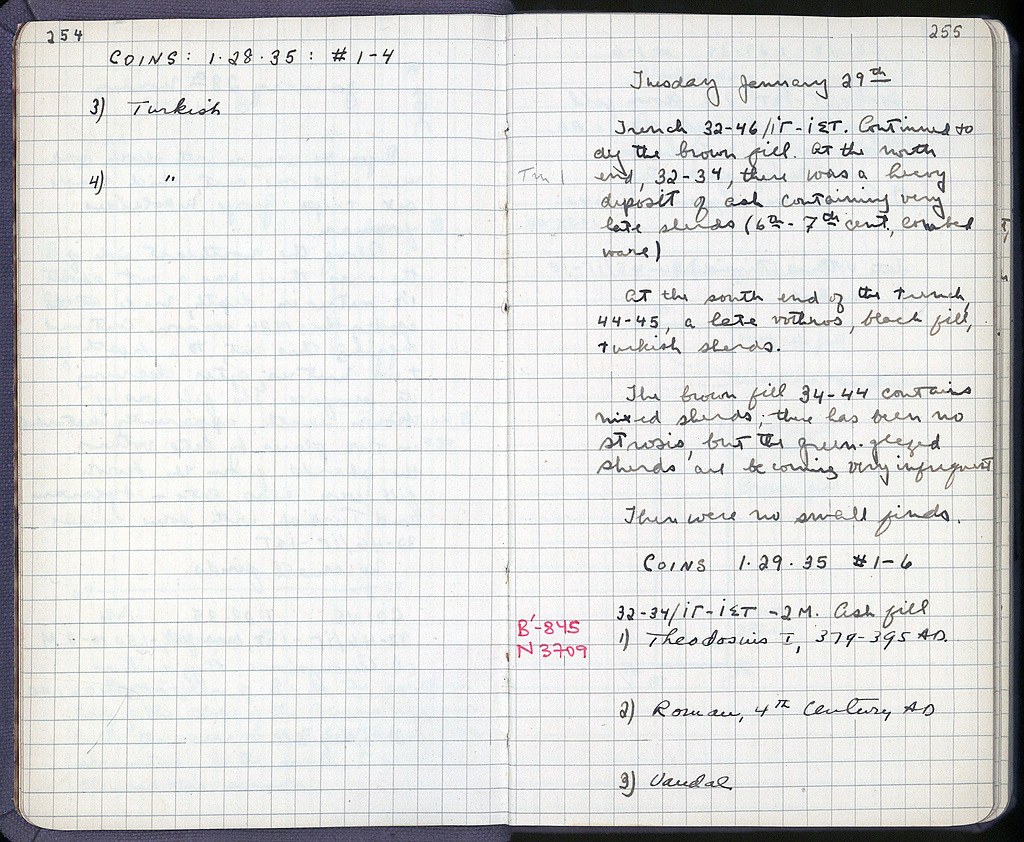 254
COINS: 1·28·35: #1-4
3) Turkish
4) "
255
Tuesday January 29th
Trench 32-46/ΙΓ-ΙΣΤ. Continued to
dig the brown fill. At the north
end, 32-34, there was a heavy
deposit of ash containing very
late sherds (6th-7th cent, combed
ware)
At the south end of the trench,
44-45, a late vothros, black fill,
turkish sherds.
The brown fill 34-44 contains
mixed sherds; there has been no
strosis, but the green-glazed
sherds are becoming very infrequent
There were no small finds.
COINS 1·29·35 #1-6
32-34/ΙΓ-ΙΣΤ -2M. Ash fill
B'-845
N 3709
1) Theodosius I, 379-395 AD.
2) Roman, 4th Century AD
3) Vandal